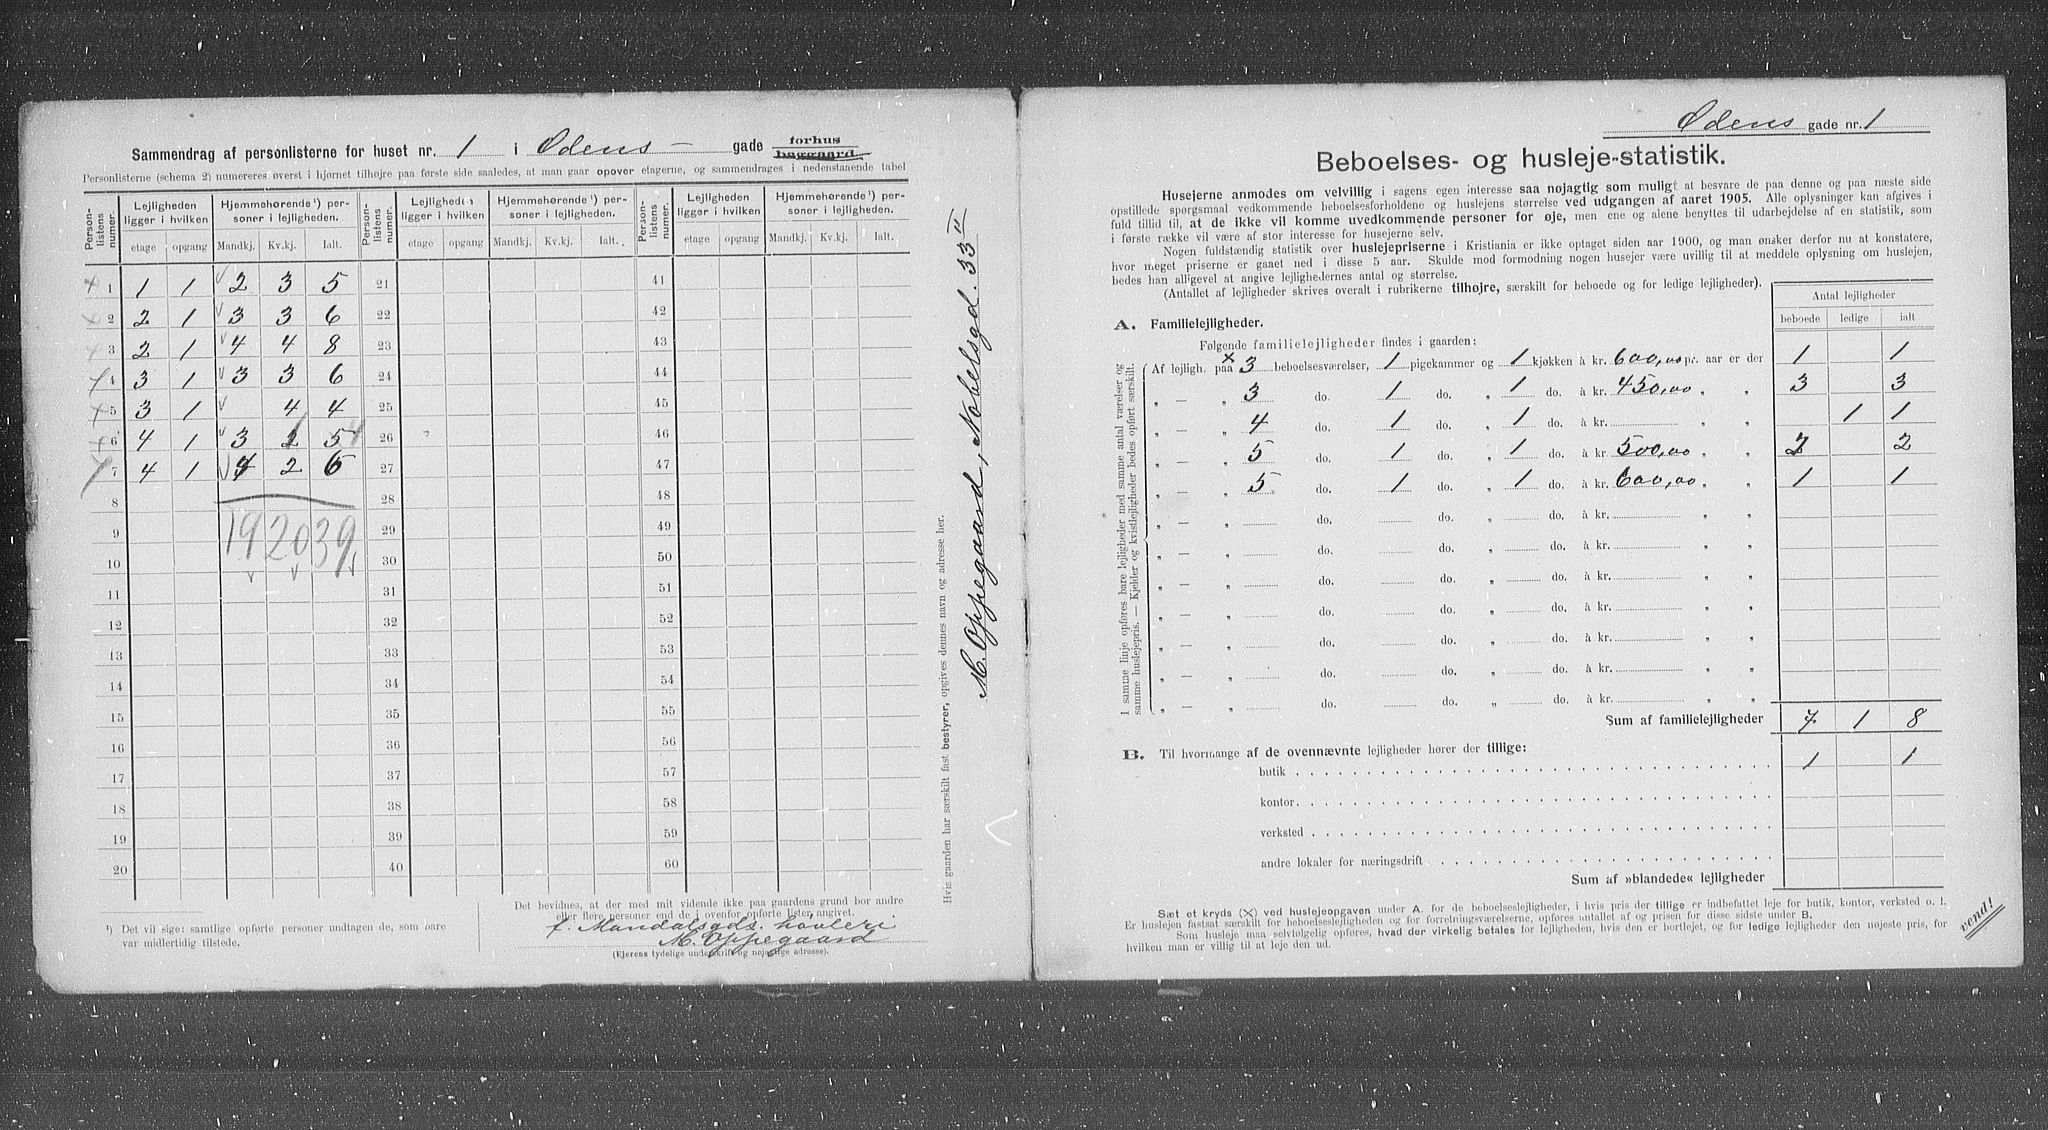 Sammendrag af personlisterne for huset nr. 1 i Odens - gade forhus baggaard
Personlisterne (schema 2) numereres øverst i hjørnet tilhøjre paa første side saaledes, at man gaar opover etagerne, og sammendrages i nedenstaaende tabel
Person-listens numer. Lejligheden ligger i hvilken Hjemmehørende¹) personer i lejligheden. Person-listens numer. Lejligheden ligger i hvilken Hjemmehørende¹) personer i lejligheden. Person-listens numer. Lejligheden ligger i hvilken Hjemmehørende¹) personer i lejligheden.
etage opgang Mandkj. Kv.kj. Ialt. etage opgang Mandkj. Kv.kj. Ialt. etage opgang Mandkj. Kv.kj. Ialt.
1 1 1 2 3 5 21 41
2 2 1 3 3 6 22 42
3 2 1 4 4 8 23 43
4 3 1 3 3 6 24 44
5 3 1 4 4 25 45
6 4 1 3 1 4 26 46
7 4 1 4 2 6 27 47
8 28 48
9 19 20 39 29 49
10 30 50
11 31 51
12 32 52
13 33 53
14 34 54
15 35 55
16 36 56
17 37 57
18 38 58
19 39 59
20 40 60
¹) Det vil sige: samtlige opførte personer undtagen de, som aare var midlertidig tilstede.
Det bevidnes, at der med mit vidende ikke paa gaardens grund bor andre
eller flere personer end de i ovenfor opførte lister angivet.
f. Mandalsgds.
M. Oppegaard
(Ejerens tydelige underskrift og nøjagtige adresse).
Hvis gaarden har særskilt fast bestyrer, opgives dennes navn og adresse her.
M. Oppegaard, Nobelsgd. 33 II
Odens gade nr. 1
Beboelses- og husleje-statistik.
Husejerne anmodes om velvillig i sagens egen interesse saa nøjagtig som muligt at besvare de paa denne og paa næste side
opstillede spørgsmaal vedkommende beboelsesforholdene og huslejens størrelse ved udgangen af aaret 1905. Alle oplysninger kan afgives i
fuld tillid til, at de ikke vil komme uvedkommende personer for øje, men ene og alene benyttes til udarbejdelse af en statistik, som
i første række vil være af stor interesse for husejerne selv.
Nogen fuldstændig statistik over huslejepriserne i Kristiania er ikke optaget siden aar 1900, og man ønsker derfor nu at konstatere,
hvor meget priserne er gaaet ned i disse 5 aar. Skulde mod formodning nogen husejer være uvillig til at meddele oplysning om huslejen,
bedes han alligevel at angive lejlighedernes antal og størrelse.
(Antallet af lejligheder skrives overalt i rubrikerne tilhøjre, særskilt for beboede og for ledige lejligheder).
Antal lejligheder
beboede ledige ialt
A. Familielejligheder.
Følgende familielejligheder findes i gaarden:
I samme linje opføres bare lejligheder med samme antal værelser og samme huslejepris. — Kjelder og kvistlejligheder bedes opført særskilt.
Af lejligh. paa × 3 beboelsesværelser, 1 pigekammer og 1 kjøkken à kr. 600,00 pr. aar er der 1 1
„ — „ 3 do. 1 do. „ 1 do. à kr. 450,00 „ „ 3 3
„ — „ 4 do. 1 do. „ 1 do. à kr. „ „ 1 1
„ — „ 5 do. 1 do. „ 1 do. à kr. 500,00 „ „ 2 2
„ — „ 5 do. 1 do. „ 1 do. à kr. 600,00 „ „ 1 1
„ — „ do. do. „ do. à kr. „ „
„ — „ do. do. „ do. à kr. „ „
„ — „ do. do. „ do. à kr. „ „
„ — „ do. do. „ do. à kr. „ „
„ — „ do. do. „ do. à kr. „ „
„ — „ do. do. „ do. à kr. „ „
„ — „ do. do. „ do. à kr. „ „
Sum af familielejligheder 7 1 8
B. Til hvormange af de ovennævnte lejligheder hører der tillige:
butik 1 1
kontor
verksted
andre lokaler for næringsdrift
Sum af »blandede« lejligheder
Sæt et kryds (×) ved huslejeopgaven under A. for de beboelseslejligheder, i hvis pris der tillige er indbefattet leje for butik, kontor, verksted o. l.
Er huslejen fastsat særskilt for beboelseslejligheden og for forretningsværelserne, opføres antallet af og prisen for disse sidste under B.
Som husleje maa selvfølgelig opføres, hvad der virkelig betales for lejligheden, hvis den er bortlejet, og for ledige lejligheder den nøjeste pris, for
hvilken man er villig til at leje den ud.
vend!